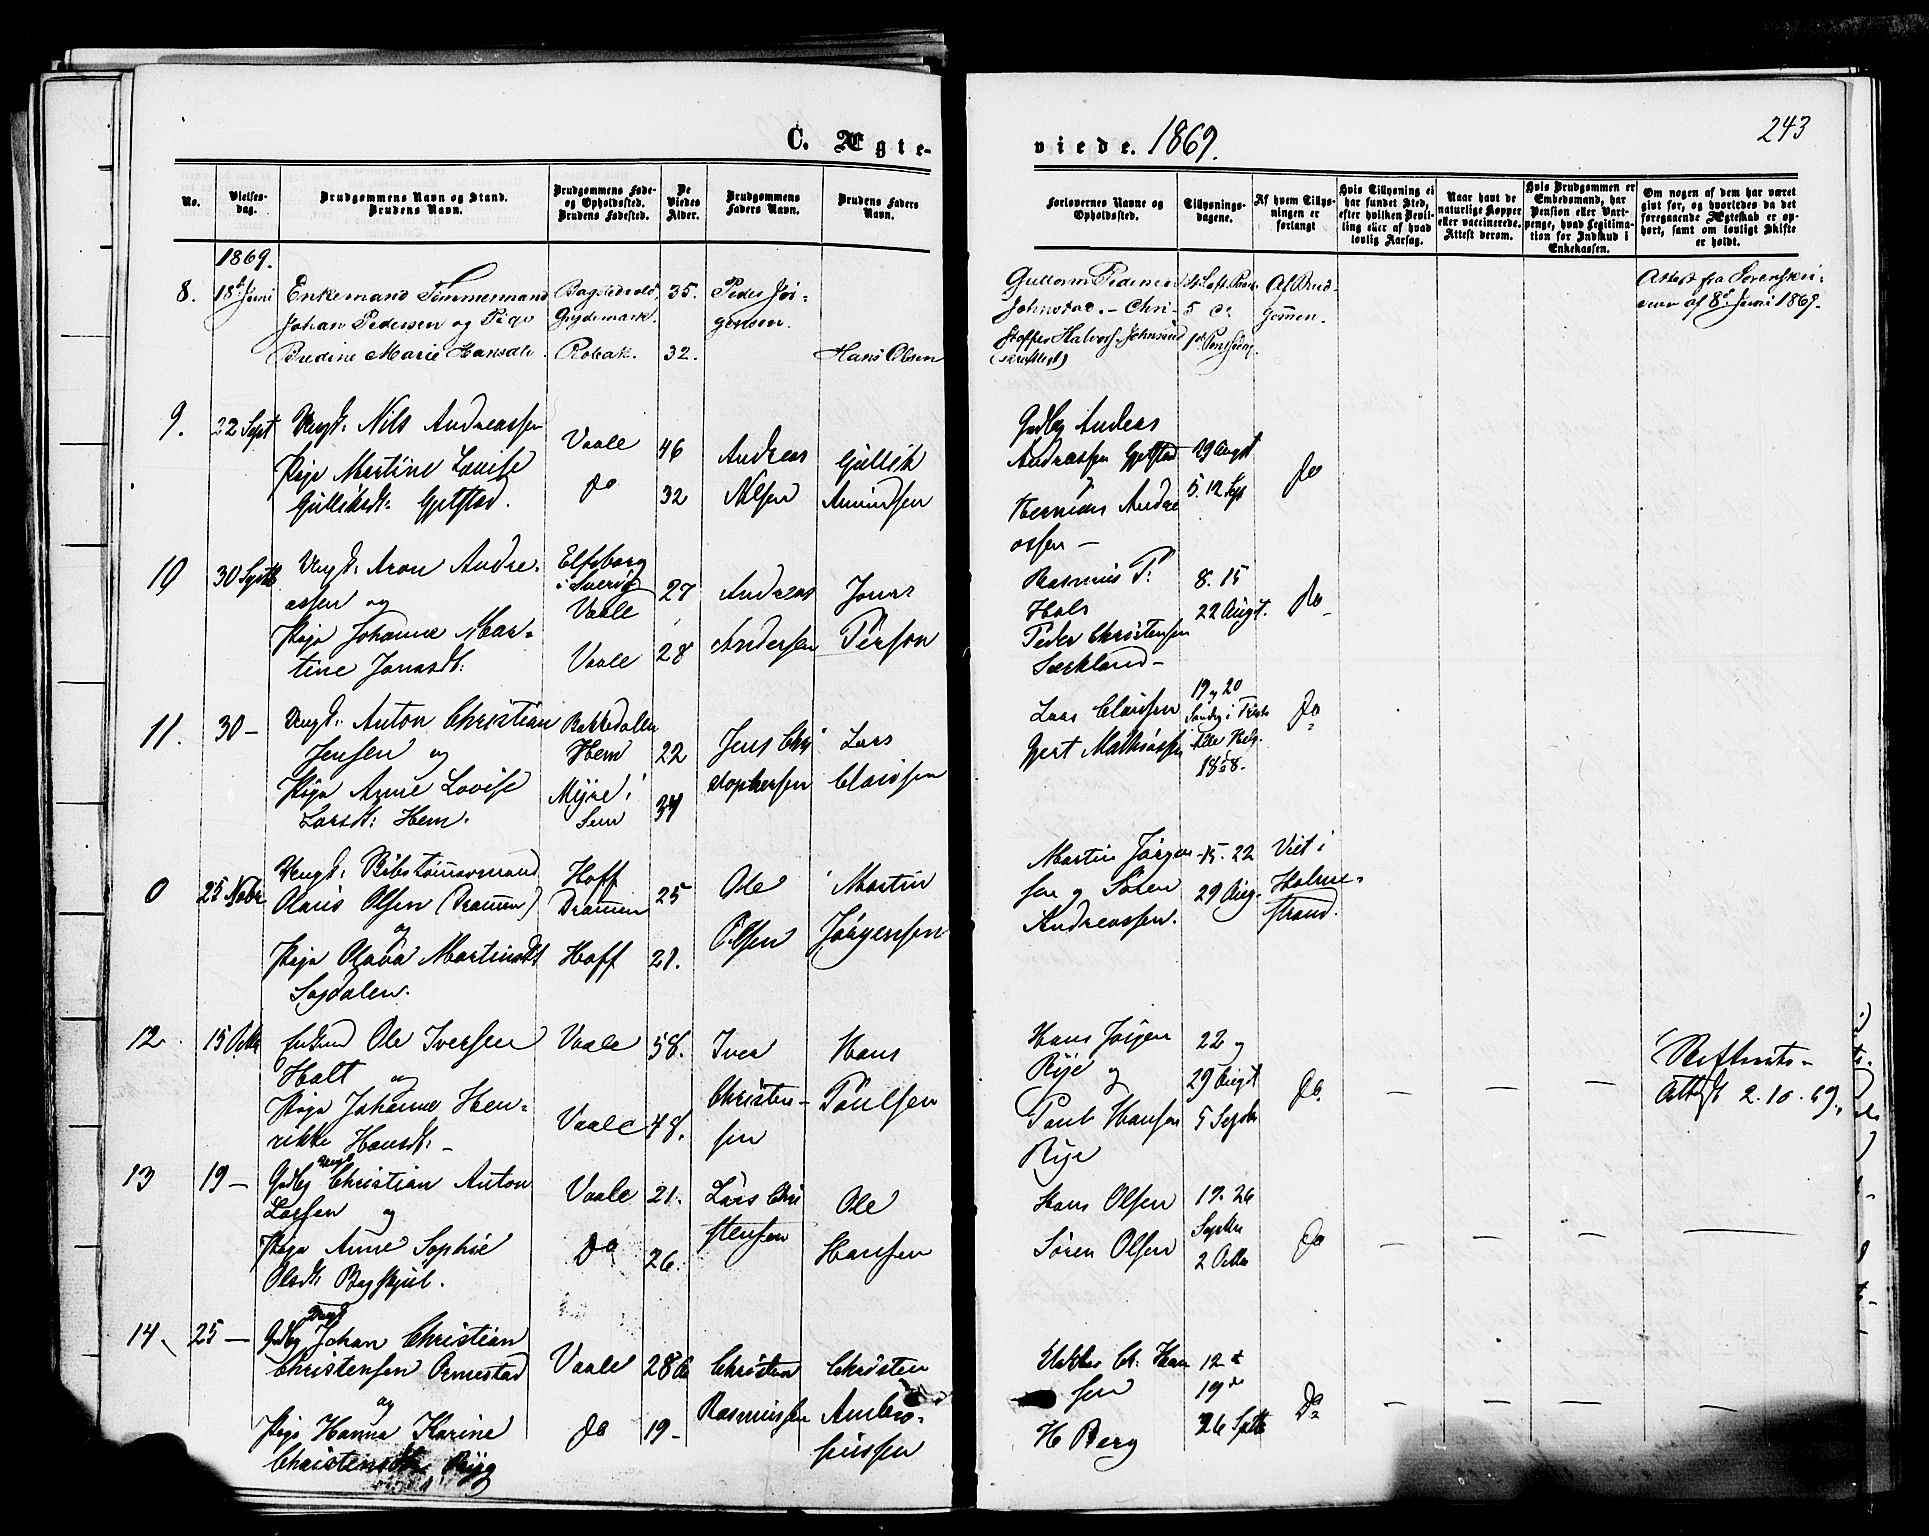 243
C. Ægte- viede. 1869.
No.
Vielses-
dag.
Brudgommens Navn og Stand.
Brudens Navn.
Brudgommens Føde-
og Opholdssted.
Brudens Fødested.
De
Viedes
Alder.
Brudgommens
Faders Navn.
Brudens Faders
Navn.
Forlovernes Navne og
Opholdssted.
Tillysnings-
dagene.
Af hvem Tillys-
ningen er
forlangt
Hvis Tillysning ei
har fundet Sted,
efter hvilken Bevil-
ling eller af hvad
lovlig Aarsag.
Naar havt de
naturlige Kopper
eller vaccinerede.
Attest derom.
Hvis Brudgommen er
Embedsmand, har
Pension eller Vart-
penge, hvad Legitima-
tion for Indskud i
Enkekassen.
Om nogen af dem har været
givt før, og hvorledes da det
foregaaende Ægteskab er op-
hørt, samt om lovligt Skifte
er holdt.
1869.
8. 18de Juni
Enkemand Tømmermand
Johan Pedersen og Pige
Bredine Marie Hansdtr.
Robak.
35.
32.
Peder Jør-
gensen.
Hans Olsen
Guttorm Pedersen
Af Brud-
gommen.
Attest fra Sorenskri-
veren af 8de Juni 1869.
9. 22 Sept
Ungk: Nils Andreassen
Pige Martine Lovise
Gulliksdt: Gjetstad.
Vaale
do
46
32
Andreas
Nilsen
Gullik
Amundsen
Gdbg Anders
Andreassen Gjetstad
Herman Andre
assen –
29 Augst
5. 12 Sept
do
10 30 Septb
Ungk: Aron Andre-
assen og
Pige Johanne Mar-
tine Jonasdt:
Elfsborg
i Sverig
Vaale
Vaale
27
28
Andreas
Andersen
Jonas
Person
Rasmus P:
Hals
Peder Christensen
8. 15
22 Augt.
do
11. 30 –
Ungk: Anton Christian
Jensen og
Pige Anne Lovise
Larsdt: Hem.
Bakkedalen
Hem
Myre i
Sem
22
34
Jens Chri
stophersen
Lars
Clausen
Lars Clausen
Gjert Mathiassen
19 og 20
do
0 25 Novbr
Olaus Olsen (Drammen)
og
Pige Olava Martinsdt
Sagdalen.
Hoff
Drammen
Hoff
25
21.
Ole
Olsen
Martin
Jørgensen
Martin Jørgen
sen og Søren
Andreassen.
15. 22
29 Aug.
Viet i
Holme-
strand.
12. 15 Octbr
Enkemd Ole Iversen
Holt og
Pige Johanne Hen-
rikke Hansdt: –
Vaale
Vaale
58.
48.
Iver
Christen-
sen
Hans
Poulsen
Hans Jørgen
Rije og
Poul Hansen
Rije
22 og
29 Augst
5 Septbr
do.
Skifterets-
Attest 2.10.69.
13 19 –
Gdbg Ungk Christian Anton
Larsen og
Pige Anne Sophie
Olsdt: Bagskjul.
Vaale
Do
21.
26.
Lars Chri
stensen
Ole
Hansen
Hans Olsen
Søren Olsen
19. 26
Septbr
2 Octbr
do
14. 25 –
Gdbg Ungk Johan Christian
Christensen Ormestad
og
Pige Hanna Karine
Christensdt
Vaale
do
28
19 –
Christen
Rasmussen
Christen
Ambro-
siussen
H Berg
12te
19de
26 Septb
Do